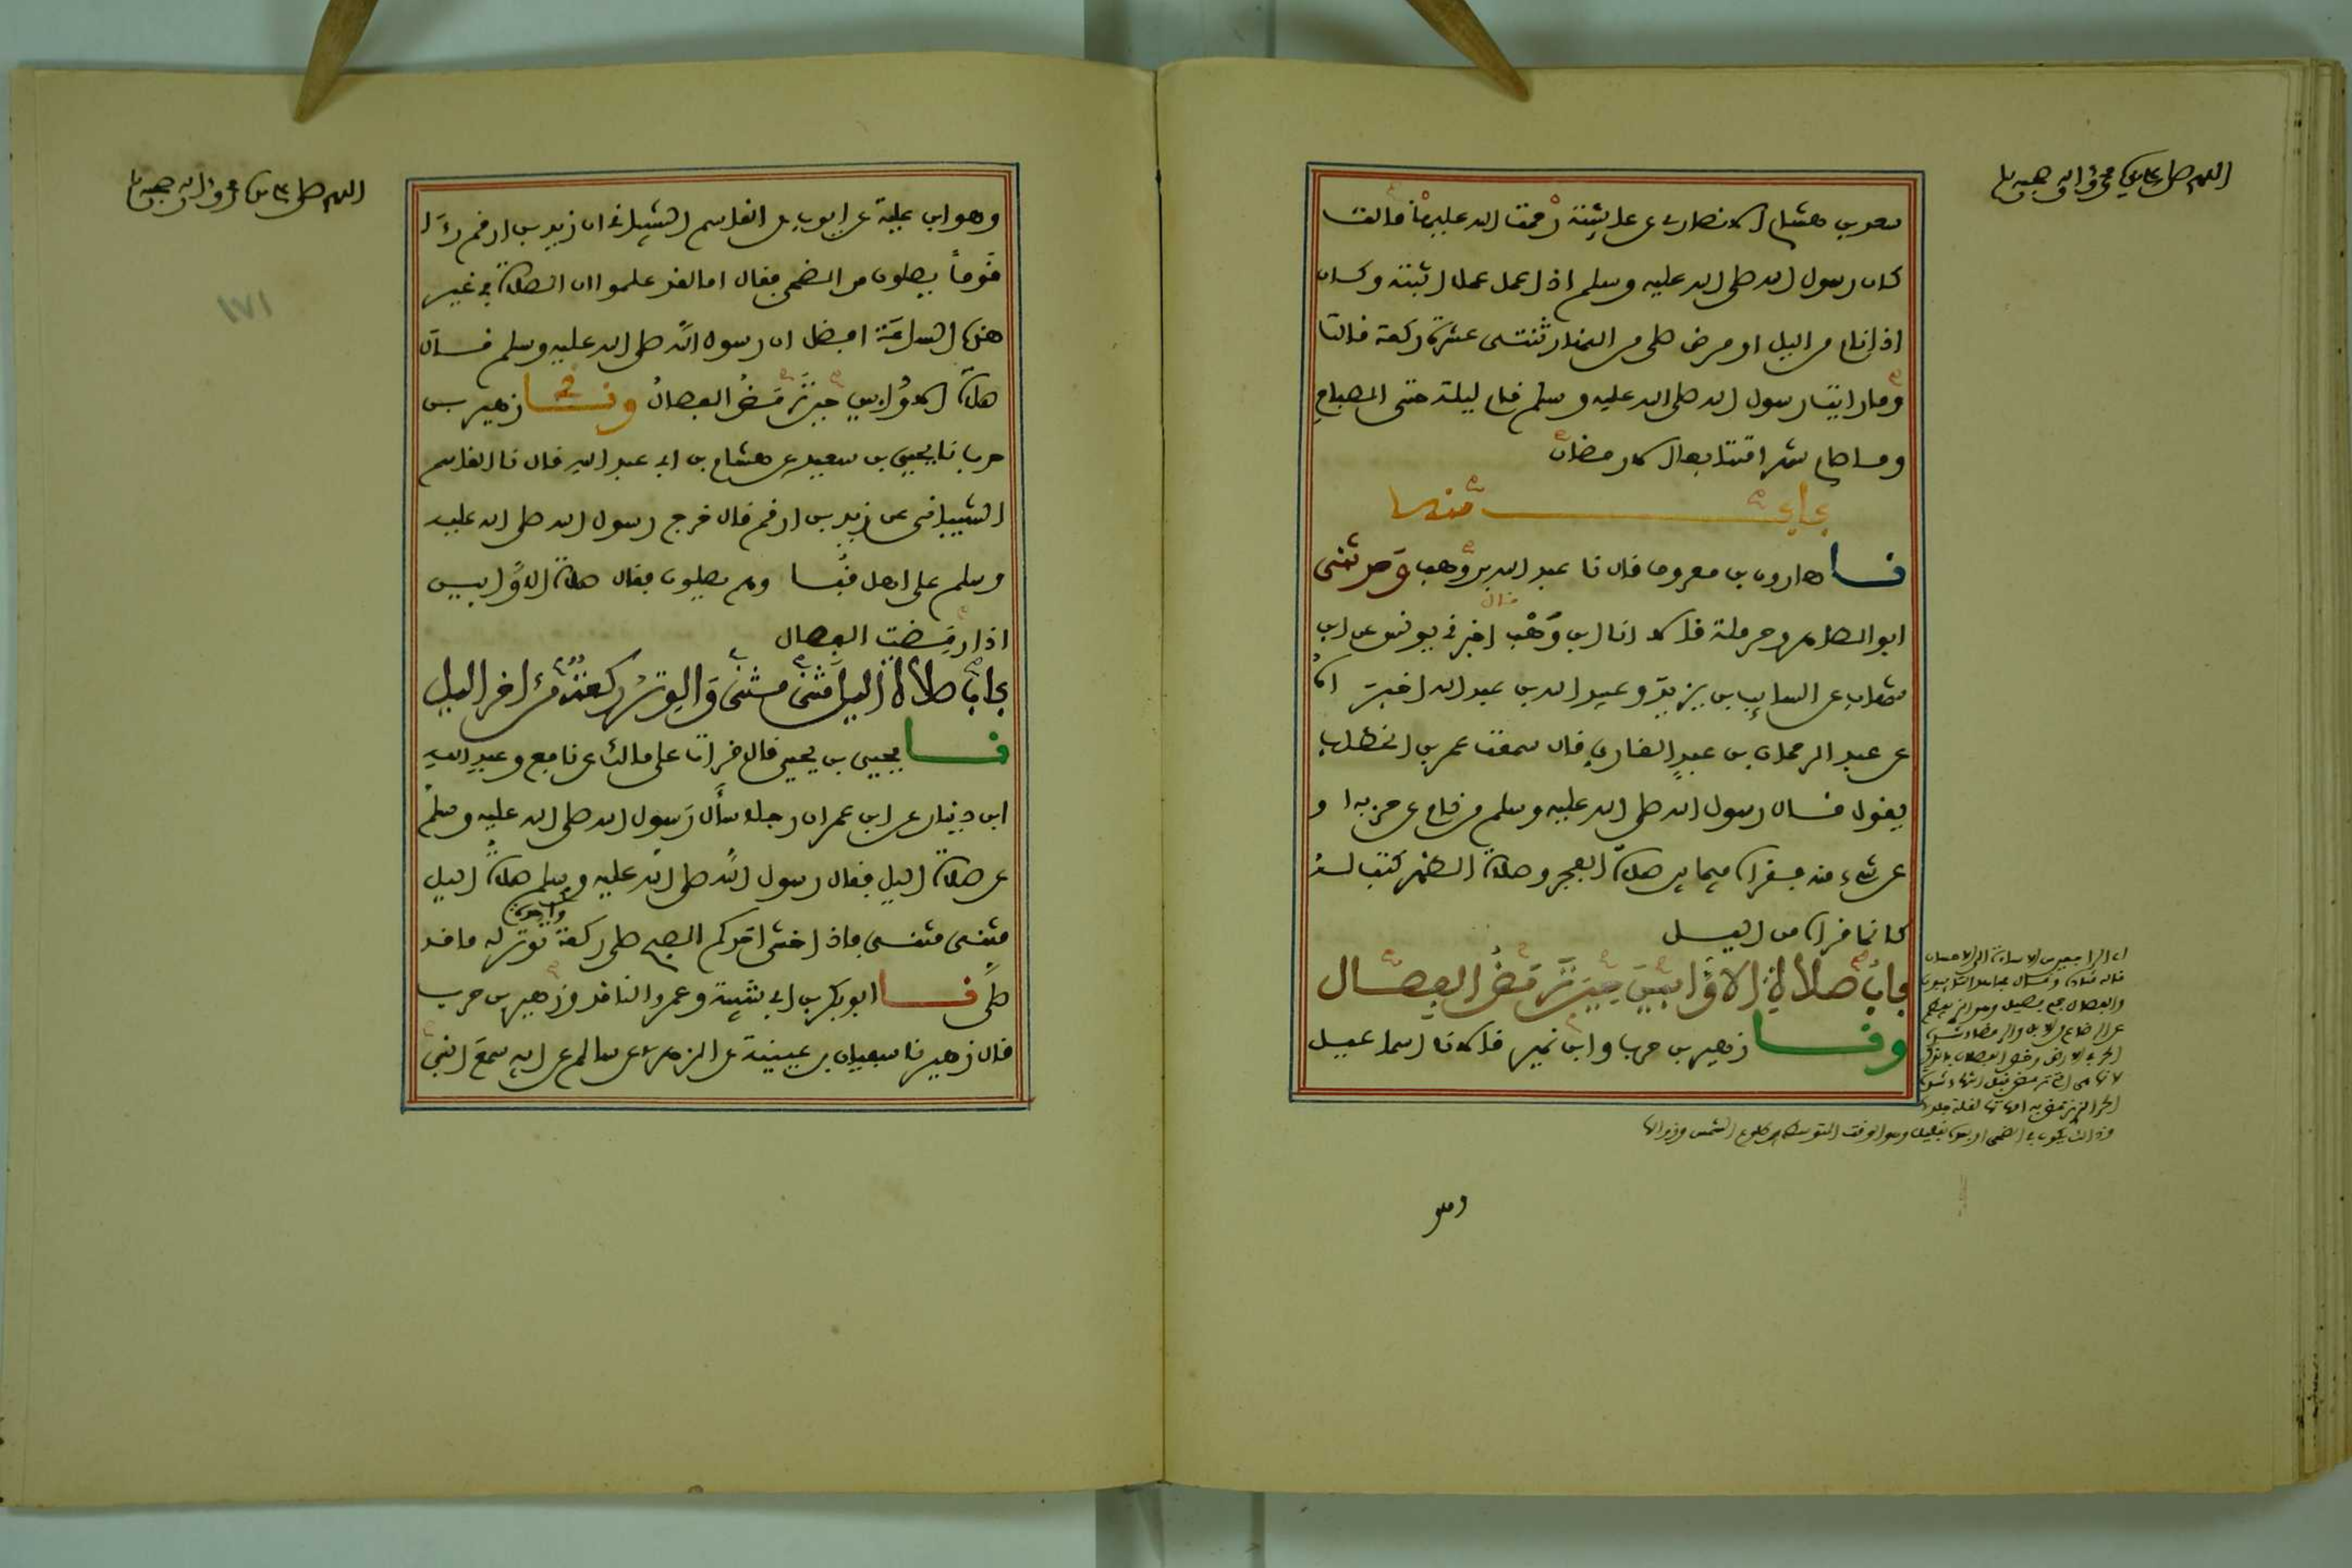 اللهم صل على سيدنا محمد وآله وصحبه وسلم
سعد بن هشام الانصاري عن عايشة رحمت الله عليها قالت
كان رسول الله صلى الله عليه وسلم اذا عمل عملا اثبته وكان
اذا نام من اليل او مرض صلى من النهار ثنتى عشرة ركعة قالت
وما رايت رسول الله صلى الله عليه وسلم قام ليلة حتى الصباح
وما صام شهرا متتابعا الا رمضان
باب منه
نا هارون بن معروف قال نا عبد الله بن وهب وحدثنى
ابو الطاهر وحرملة قالا انا ابن وهب قال اخبرنى يونس عن ابن
شهاب عن السايب بن يزيد وعبيد الله بن عبد الله اخبراه
عن عبد الرحمان بن عبد القاري قال سمعت عمر بن الخطاب
يقول قال رسول الله صلى الله عليه وسلم من نام عن حزبه او
عن شيء منه فقراه فيما بين صلاة الفجر وصلاة الظهر كتب له
كانما قراه من اليل
باب صلاة الاوابين حين ترمض الفصال
ونا زهير بن حرب وابن نمير قالا نا اسماعيل
وهو
اللهم صل على سيدنا محمد وآله وصحبه وسلم
١٧١
وهو ابن علية عن ايوب عن القاسم الشيبانى ان زيد بن ارقم رءا
قوما يصلون من الضحى فقال اما لقد علموا ان الصلاة في غير
هذه الساعة افضل ان رسول الله صلى الله عليه وسلم قال
صلاة الاوابين حين ترمض الفصال ونا زهير بن
حرب نا يحيى بن سعيد عن هشام بن ابي عبد الله قال نا القاسم
الشيبانى عن زيد بن ارقم قال خرج رسول الله صلى الله عليه
وسلم على اهل قبا وهم يصلون فقال صلاة الاوابين
اذا رمضت الفصال
باب صلاة اليل مثنى مثنى والوتر ركعة من اخر اليل
نا يحيى بن يحيى قال قرات على مالك عن نافع وعبد الله
ابن دينار عن ابن عمر ان رجلا سأل رسول الله صلى الله عليه وسلم
عن صلاة اليل فقال رسول الله صلى الله عليه وسلم صلاة اليل
مثنى مثنى فاذا خشى احدكم الصبح صلى ركعة واحدة توتر له ما قد
صلى نا ابو بكر بن ابي شيبة وعمرو الناقد وزهير بن حرب
قال زهير نا سفيان بن عيينة عن الزهري عن سالم عن ابيه سمع النبي